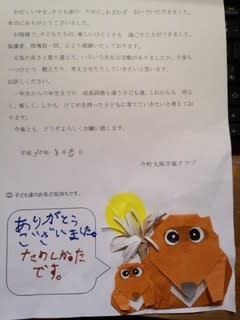 お忙しい中を、子ども達の ために、わざわざ おいでいただきました。
本当にありがとうございました。
お陰様で、子どもたちは、楽しいひとときを 過ごすことができました。
保護者、指導員一同、心より感謝いたしております。
元気の良さと取り違えて、いろいろ失礼な言動がありましたが、今後も
一つひとつ 教えたり 考えさせたりしていきたいと思います。
お許しください。
一年生から六年生までの 成長段階も違う子ども達、これからも 明る
く、楽しく、しかも けじめを持った子どもに育てていきたいと考えてお
ります。
今後とも どうぞよろしくお願い致します。
平成
今町大風学童クラブ
◎ 子ども達のお礼の気持ちです。
ありがとう
ございました。
たのしかった
です。